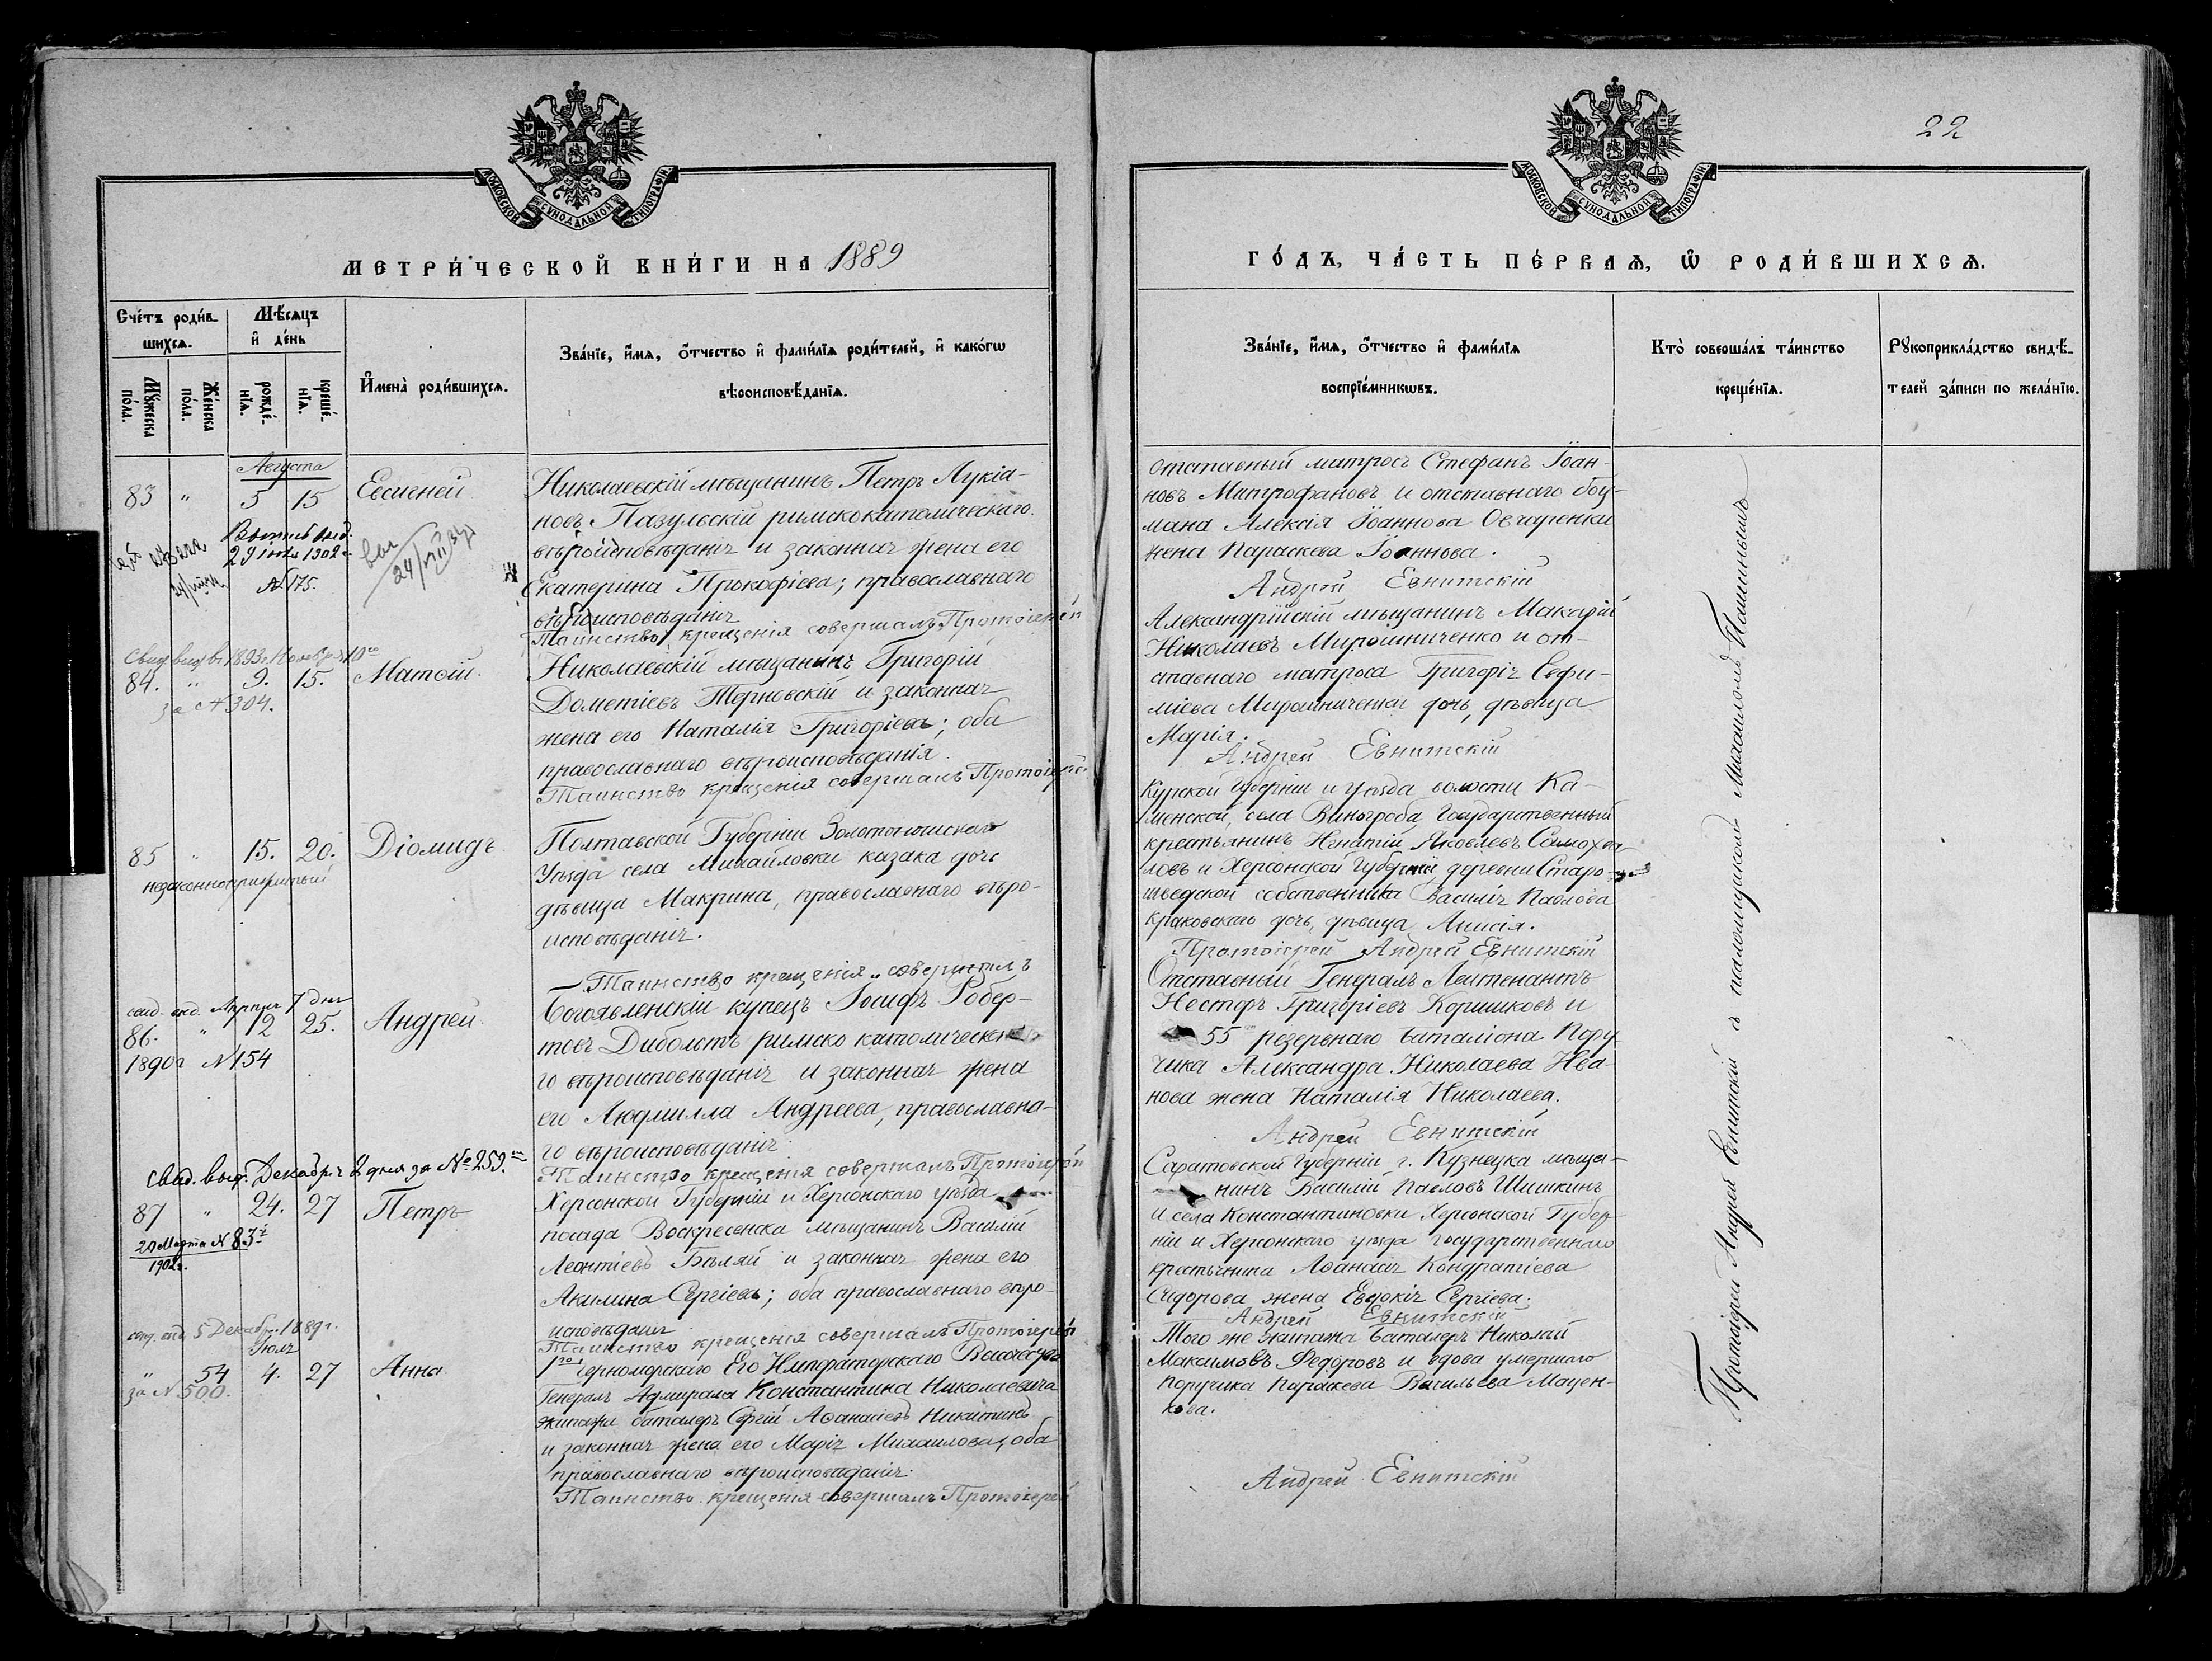 22
МОСКОВСКОЙ СУНОДАЛЬНОЙ ТИПОГРАФІИ
МЕТРИ́ЧЕСКОЙ КНИ́ГИ НА 1889
Сче́тъ роди́в-
шихсѧ.
Мꙋ́жеска по́ла.
Же́нска по́ла.
Мѣ́сѧцъ
и҆ де́нь
рожде́-нїѧ.
креще́-нїѧ.
И҆мена̀ роди́вшихсѧ.
Зва́нїе, и҆́мѧ, ѻ҆́тчество и҆ фами́лїѧ роди́телей, и҆ како́гѡ
вѣроисповѣ́данїѧ.
Августа
83 " 5 15 Евсигней
29 іюля 1902 г.
№ 175.
Николаевскій мѣщанинъ Петръ Лукіа-
новъ Пазульскій римскокатолическаго
вѣроисповѣданія и законная жена его
Екатерина Прокофіева; православнаго
вѣроисповѣданія
Таинство крещенія совершалъ Протоіерей
84. " 9. 15. Матѳій.
за № 304.
Николаевскій мѣщанинъ Григорій
Дометіевъ Терновскій и законная
жена его Наталія Григоріева; оба
православнаго вѣроисповѣданія.
Таинство крещенія совершалъ Протоіерей
85 " 15. 20. Діомидъ
незаконноприжитый
Полтавской Губерніи Золотоношскаго
Уѣзда села Михайловки казака дочь
дѣвица Макрина, православнаго вѣро-
исповѣданія.
Таинство крещенія совершалъ
86. " 12 25. Андрей.
1890 г № 154
Богоявленскій купецъ Іосифъ Робер-
товъ Диболтъ римско католическа-
го вѣроисповѣданія и законная жена
его Людмилла Андреева, православна-
го вѣроисповѣданія.
Таинство крещенія совершалъ Протоіерей
Свид. выд. Декабря 2 дня за № 259.
87 " 24. 27 Петръ
20 Марта № 83
1902 г.
Херсонской Губерніи и Херсонскаго уѣзда
посада Воскресенска мѣщанинъ Василій
Леонтіевъ Бѣляй и законная жена его
Акилина Сергіева; оба православнаго вѣро-
исповѣданія
Таинство крещенія совершалъ Протоіерей
5 Декабр. 1889 г.
Іюля
" 54 4. 27 Анна
за № 500.
1го Черноморскаго Его Императорскаго Высочества
Генералъ Адмирала Константина Николаевича
экипажа баталеръ Сергій Аѳанасіевъ Никитинъ
и законная жена его Марія Михаилова; оба
православнаго вѣроисповѣданія.
Таинство крещенія совершалъ Протоіерей
МОСКОВСКОЙ СУНОДАЛЬНОЙ ТИПОГРАФІИ
ГО́ДЪ, ЧА́СТЬ ПЕ́РВАѦ, Ѡ҆ РОДИ́ВШИХСѦ.
Зва́нїе, и҆́мѧ, ѻ҆́тчество и҆ фами́лїѧ
воспрїе́мникѡвъ.
Кто̀ соверша́лъ та́инство
креще́нїѧ.
Рꙋкоприкла́дство свидѣ́-
телей за́писи по жела́нїю.
Отставный матросъ Стефанъ Іоан-
новъ Митрофановъ и отставнаго боц-
мана Алексія Іоаннова Овчаренки
жена Параскева Іоаннова.
Андрей Евнитскій
Александрійскій мѣщанинъ Макарій
Николаевъ Мирошниченко и от-
ставнаго матроса Григорія Евфи-
міева Мирошниченка дочь, дѣвица
Марія.
Андрей Евнитскій
Курской Губерніи и Уѣзда волости Ка-
менской, села Виногроба Государственный
крестьянинъ Игнатій Яковлевъ Самохва-
ловъ и Херсонской Губерніи, деревни Старо-
шведской собственника Василія Павлова
Краковскаго дочь, дѣвица Анисія.
Протоіерей Андрей Евнитскій
Отставный Генералъ Лейтенантъ
Несторъ Григоріевъ Коришковъ и
55 резервнаго баталіона Пору-
чика Александра Николаева Ива-
нова жена Наталія Николаева.
Андрей Евнитскій
Саратовской Губерніи г. Кузнецка мѣща-
нинъ Василій Павловъ Шишкинъ
и села Константиновки Херсонской Губер-
ніи и Херсонскаго уѣзда государственнаго
крестьянина Аѳанасія Кондратіева
Сидорова жена Евдокія Сергіева.
Андрей Евнитскій
Того же экипажа баталеръ Николай
Максимовъ Федоровъ и вдова умершаго
поручика Параскева Васильева Мацен-
кова.
Андрей Евнитскій
Протоіерей Андрей Евнитскій съ псаломщикомъ Михаиломъ Пашинымъ